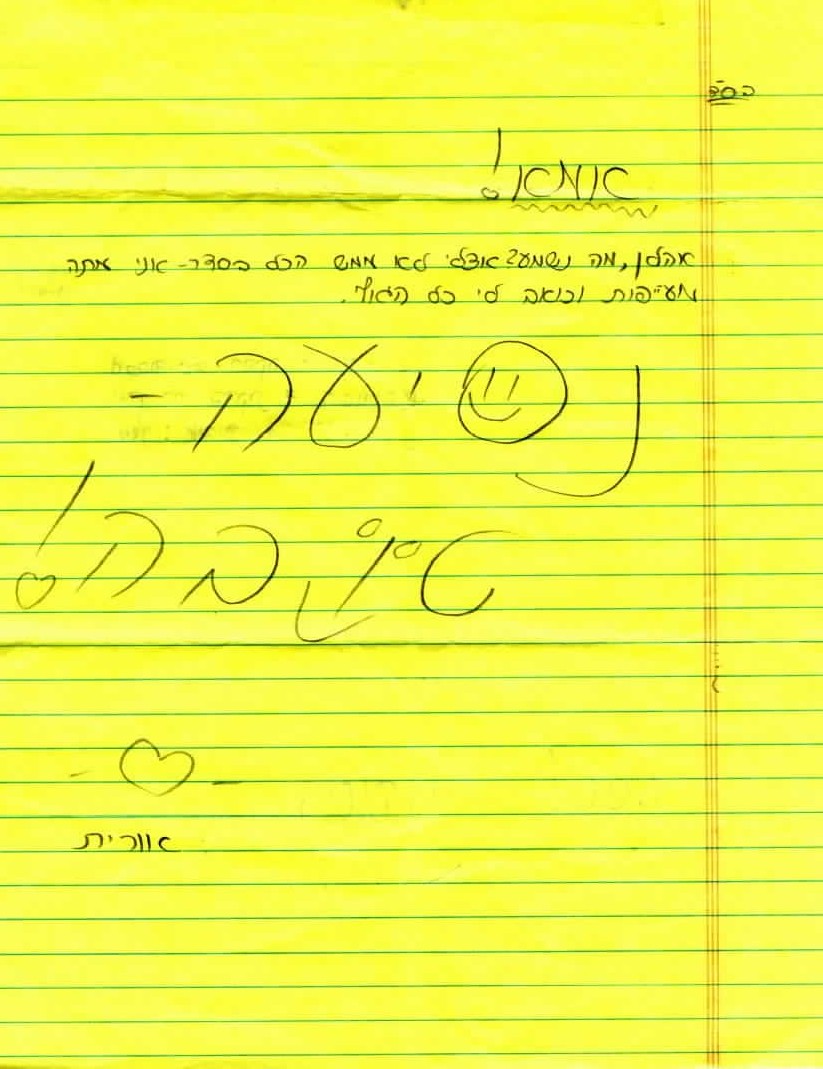 בס"ד
אמא!
אהלן, מה נשמע? אצלי לא ממש הכל בסדר- אני מתה
מעייפות וכואב לי כל הגוף.
נסיעה -
טובה!
אורית